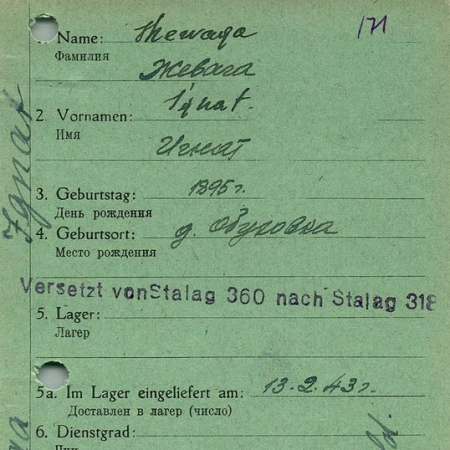 171
1. Name: Shewaga
Фамилия
Жевага
2. Vornamen: Ignat.
Имя
Игнат
3. Geburtstag: 1895 г.
День рождения
4. Geburtsort: д. Обуховка
Место рождения
Versetzt von Stalag 360 nach Stalag 318
5. Lager:
Лагер
5a. Im Lager eingeliefert am: 13.2.43 г.
Доставлен в лагер (число)
6. Dienstgrad:
Ignat